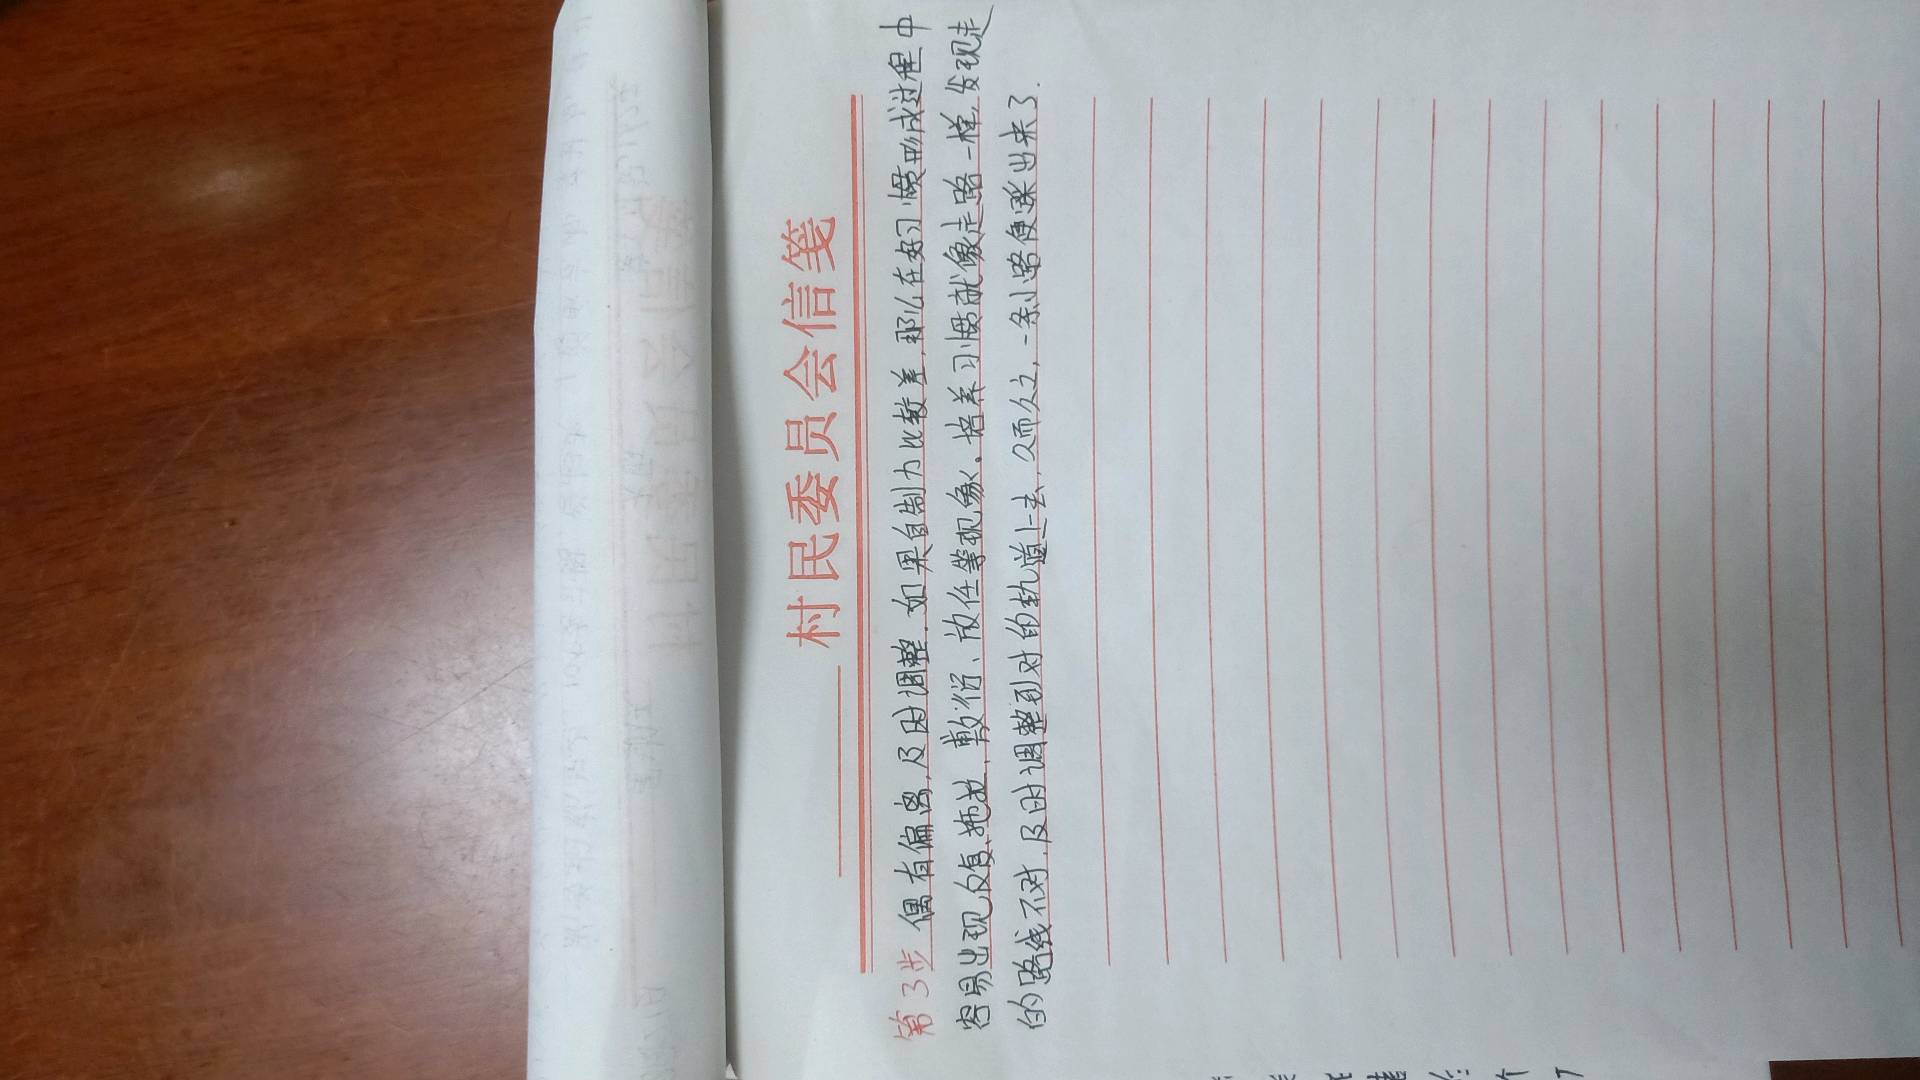 村民委员会信笺
第3步 偶有偏离,及时调整.如果自制力比较差,那么在好习惯形成过程中
容易出现反复、拖拉,敷衍、放任等现象。培养习惯就像走路一样,发现走
的路线不对,及时调整到对的轨道上去,久而久之,一条小路便踩出来了.